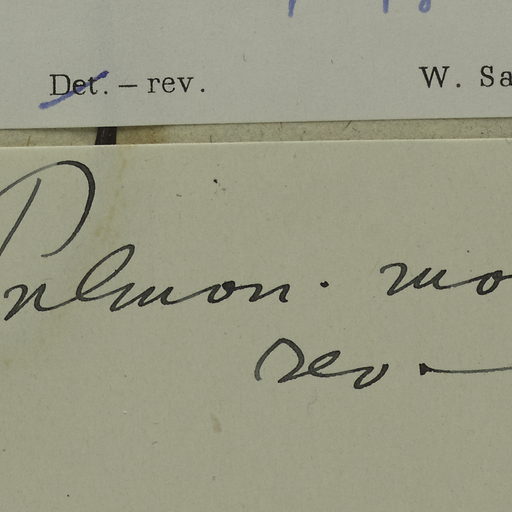 Det. — rev. W. Sa
Pulmon. mo
rev.—